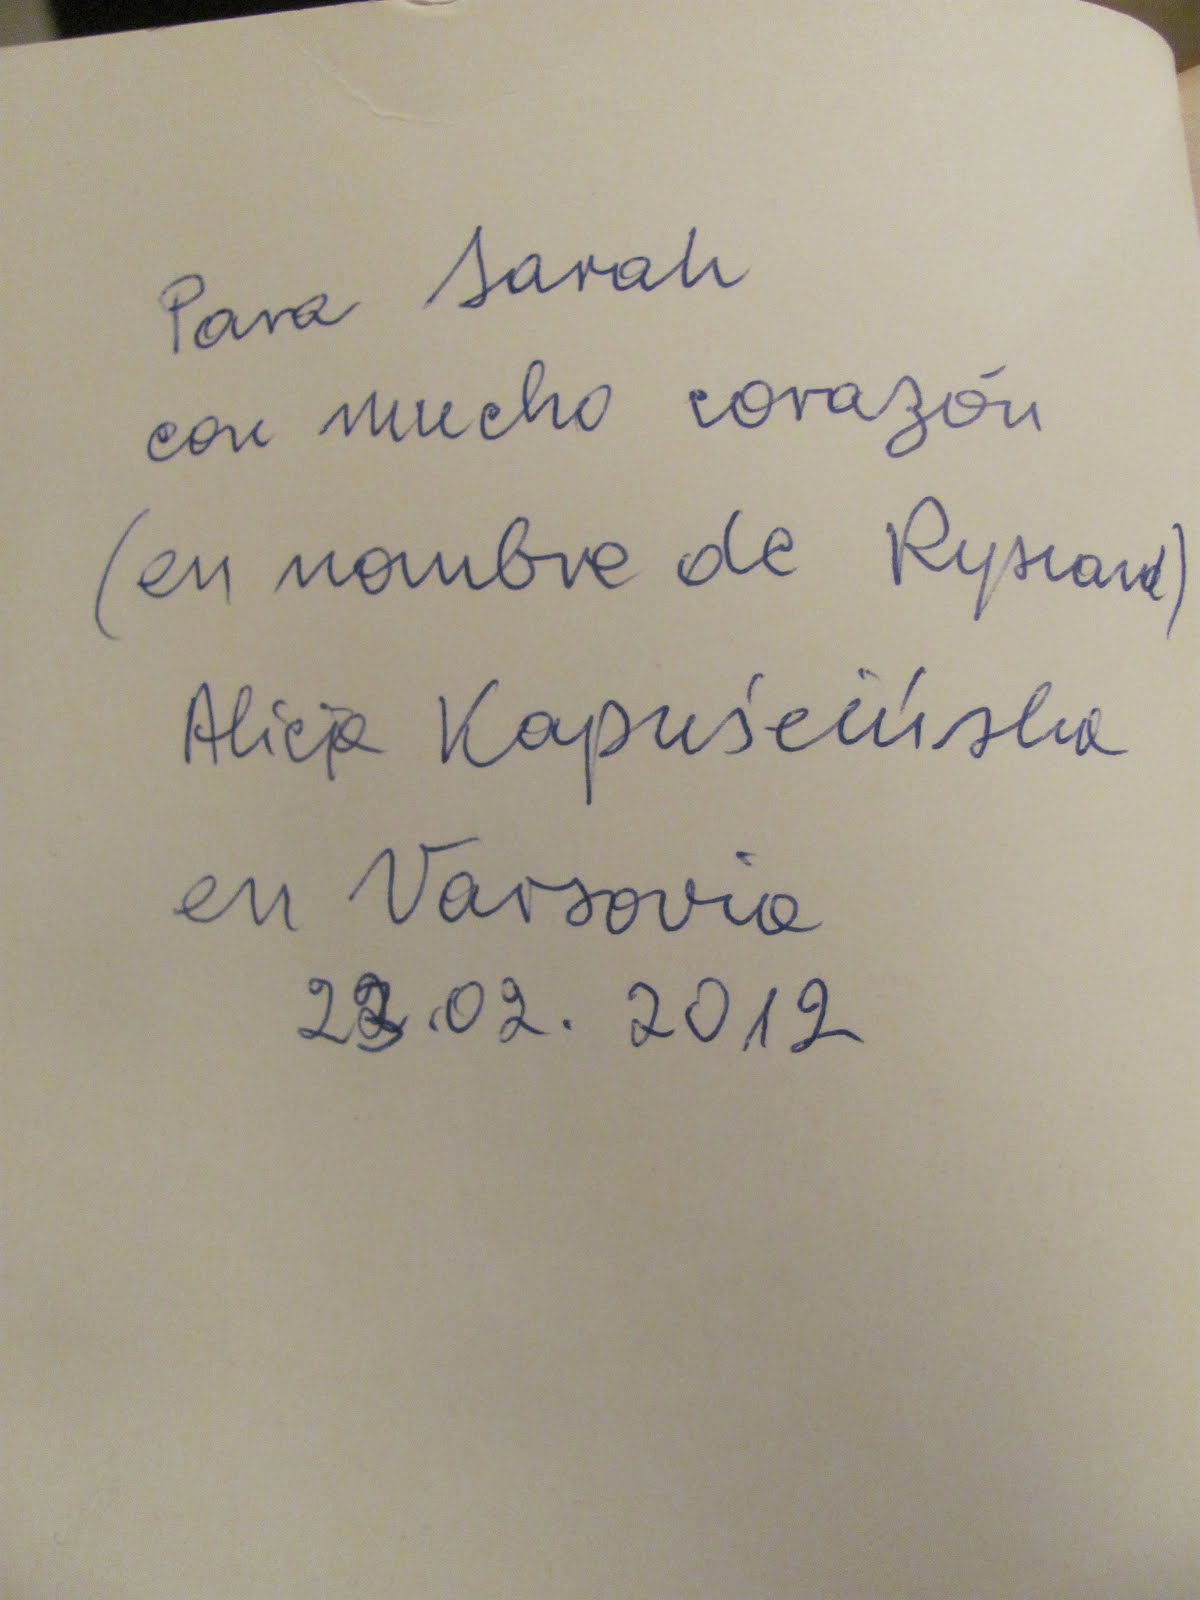 Para Sarah
con mucho corazón
(en nombre de Ryszard)
Alicja Kapuścińska
en Varsovia
22.02.2012